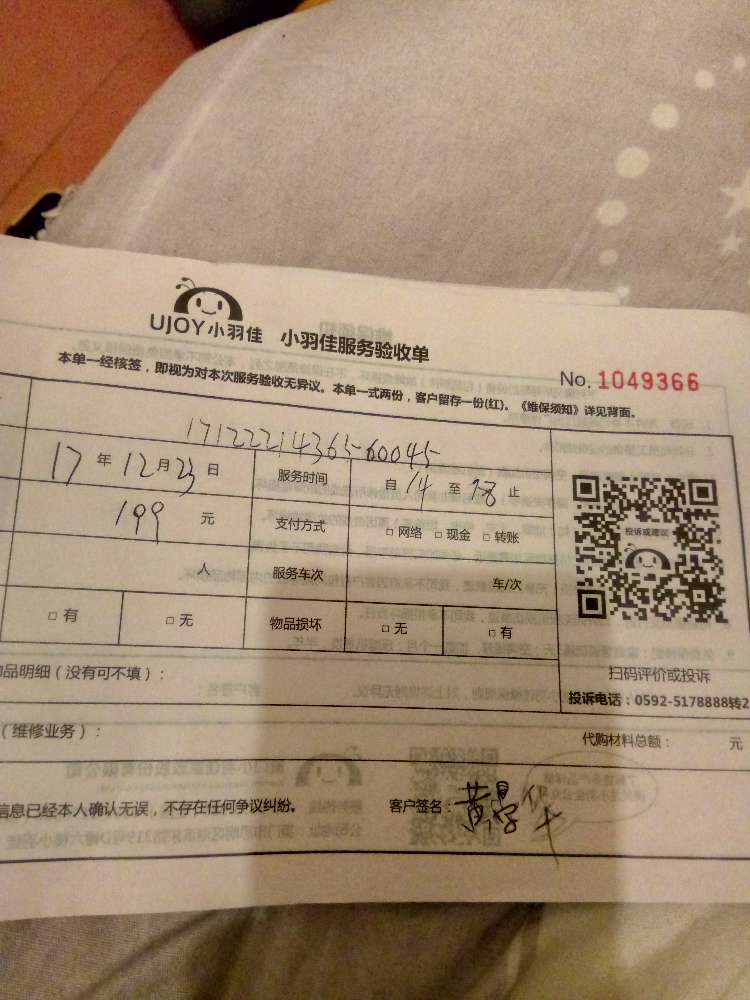 UJOY小羽佳 小羽佳服务验收单
本单一经核签，即视为对本次服务验收无异议。本单一式两份，客户留存一份(红)。《维保须知》详见背面。
No. 1049366
1712221436560045
17 年 12 月 23 日 服务时间 自 14 至 18 止
199 元 支付方式 □ 网络 □ 现金 □ 转账
人 服务车次 车/次
□ 有 □ 无 物品损坏 □ 无 □ 有
投诉或建议
扫码评价或投诉
投诉电话：0592-5178888转2
品明细（没有可不填）：
（维修业务）： 代购材料总额： 元
信息已经本人确认无误，不存在任何争议纠纷。 客户签名：黄